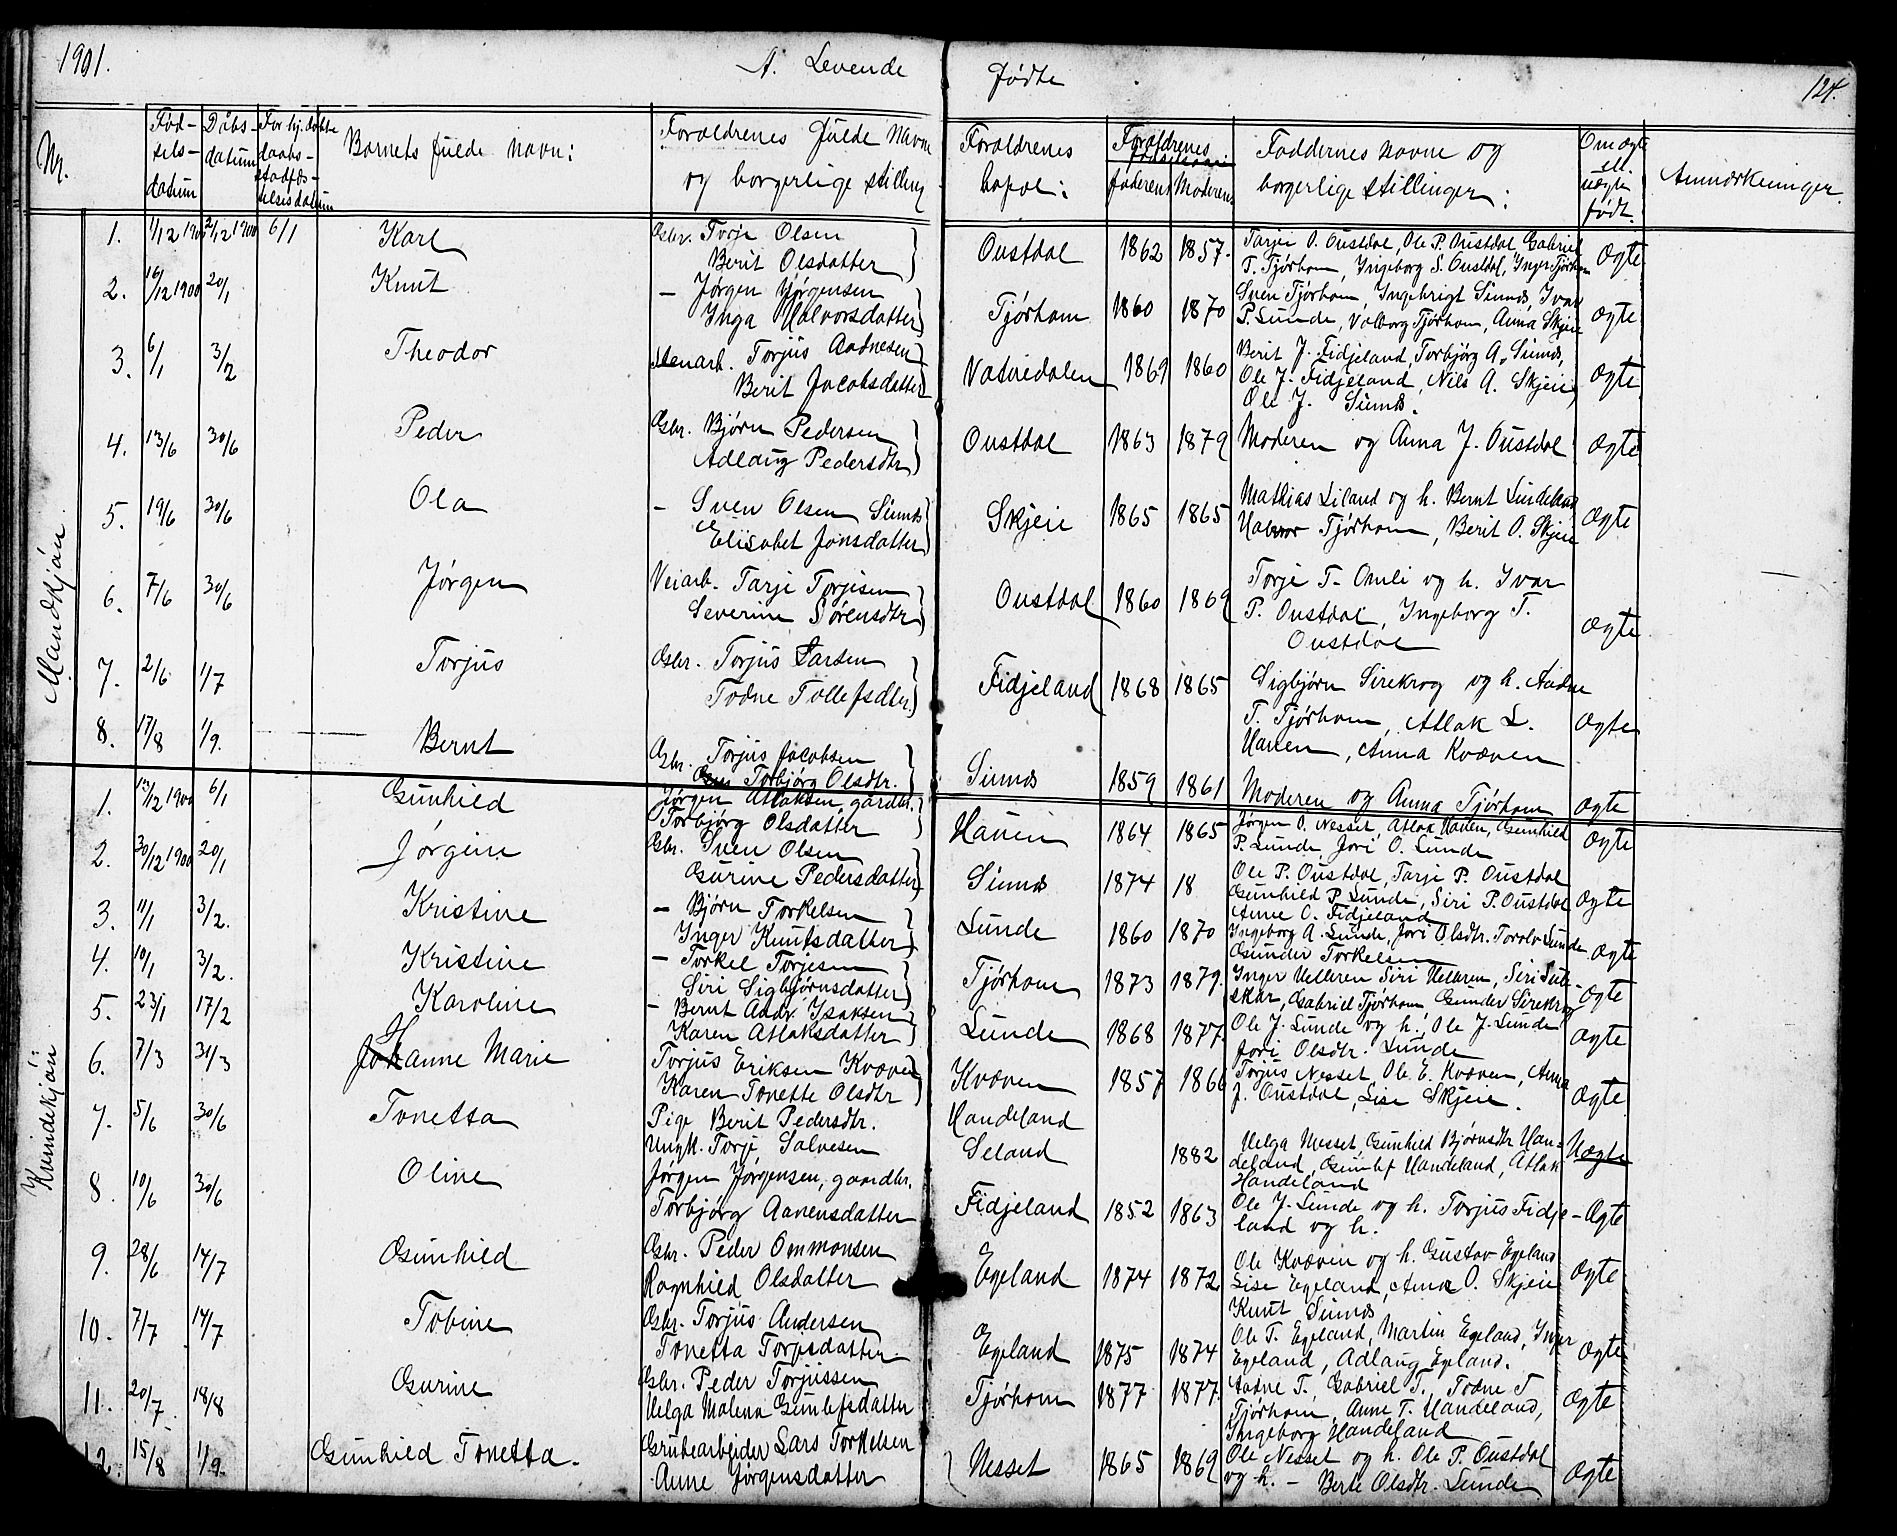 1901. A. Levende Fødte 124.
Nr. Fød-sels-datum Dåbs-datum For hj.døbte daabs-stadfæs-telsesdatum Barnets fulde navn: Forældrenes fulde navne og borgerlige stilling Forældrenes bopæl: Forældrenes fødselsaar Faderens Moderens Faddernes navne og borgerlige stillinger: Om ægte ell. uægte født. Anmærkninger.
Mandkjøn.
1. 1/12 1900 2/12 1900 6/1 Karl Gbr. Torje Olsen Oustdal 1862 1857. Tarjei O. Oustdal, Ole P. Oustdal Gabriel Ægte
Berit Olsdatter T. Tjørhom, Ingeborg S. Oustdal, Inger Tjørhom
2. 16/12 1900 20/1 Knut – Jørgen Jørgensen Tjørhom 1860 1870 Sven Tjørhom, Ingebrigt Sinnes, Ivar Ægte
Inga Halvorsdatter P. Lunde, Valborg Tjørhom, Anna Skjeie
3. 6/1 3/2 Theodor Stenarb. Torjus Aadnesen Vatnedalen 1869 1860 Berit J. Fidjeland, Torbjørg A. Sinnes, Ægte
Berit Jacobsdatter Ole J. Fidjeland, Nils A. Skjeie,
Ole J. Sinnes.
4. 13/6 30/6 Peder Gbr. Bjørn Pedersen Oustdal 1863 1879 Moderen og Anna J. Oustdal Ægte
Adlaug Pedersdtr
5. 19/6 30/6 Ola – Sven Olsen Sinnes Skjeie 1865 1865 Mathias Liland og h. Bernt Lindeland Ægte
Elisabet Jonsdatter Halvor Tjørhom, Berit O. Skjeie
6. 7/6 30/6 Jørgen Veiarb. Tarje Torjisen Oustdal 1860 1869 Torje T. Omli og h. Ivar Ægte
Severine Sørensdtr P. Oustdal, Ingeborg T.
Oustdal
7. 2/6 1/7 Torjus Gbr. Torjus Larsen Fidjeland 1868 1865 Sigbjørn Sirekrog og h. Aadne Ægte
Todne Tollefsdtr. T. Tjørhom, Atlak L.
Haven, Anna Kvæven
8. 17/8 1/9. Bernt Gbr. Torjus Jacobsen Sinnes 1859 1861 Moderen og Anna Tjørhom Ægte
Torbjørg Olsdtr.
Kvindekjøn:
1. 13/12 1900 6/1 Gunhild Jørgen Atlaksen gaardbr. Hauen 1864 1865 Jørgen O. Nesset, Atlak Hauen, Gunhild Ægte
Torbjørg Olsdatter P. Lunde, Jori O. Lunde
2. 30/12 1900 20/1 Jørgine Gbr. Sven Olsen Sinnes 1874 18 Ole P. Oustdal, Tarje P. Oustdal Ægte
Gurine Pedersdatter Gunhild P. Lunde, Siri P. Oustdal
Anne O. Fidjeland
3. 11/1 3/2. Kristine – Bjørn Torkelsen Lunde 1860 1870 Ingeborg A. Lunde, Jori Olsdtr. Torolv Lunde Ægte
Inger Knutsdatter Gunder Torkelsen
4. 10/1 3/2. Kristine – Torkel Torjesen Tjørhom 1873 1879. Inger Helleren Siri Helleren, Siri Sul- Ægte
Siri Sigbjørnsdatter skar, Gabriel Tjørhom Gunder Sirekrog
5. 23/1 17/2 Karoline – Bernt Andr. Isaksen Lunde 1868 1877. Ole J. Lunde og h. Ole J. Lunde Ægte
Karen Atlaksdatter Jori Olsdtr. Lunde
6. 7/3 31/3 Johanne Marie Torjus Eriksen Kvæven Kvæven 1857 1866 Torjus Nesset, Ole E. Kvæven, Anna Ægte
Karen Tonette Olsdtr J. Oustdal, Lise Skjeie.
7. 5/6 30/6 Tonetta Pige Berit Pedersdtr. Handeland
Ungk. Torje Salvesen Seland 1882 Helga Nesset, Gunhild Bjørnsdtr Han- Uægte
deland, Gunlef Handeland, Atlak
Handeland
8. 10/6 30/6 Oline Jørgen Jørgensen, gaardbr. Fidjeland 1852 1863 Ole J. Lunde og h. Torjus Fidje- Ægte
Torbjørg Aanensdatter land og h.
9. 28/6 14/7 Gunhild Gbr. Peder Ommonsen Egeland 1874 1872 Ole Kvæven og h. Gustav Egeland Ægte
Ragnhild Olsdatter Lise Egeland, Anna O. Skjeie
Knut Sinnes
10. 7/7 14/7 Tobine Gbr. Torjus Andersen Egeland 1875 1874 Ole T. Egeland, Martin Egeland, Inger Ægte
Tonetta Torjusdatter Egeland, Adlaug Egeland.
11. 20/7 18/8 Gurine Gbr. Peder Torjussen Tjørhom 1877 1877. Aadne T., Gabriel T., Todne T Ægte
Helga Malena Gunlefsdatter Tjørhom, Anne T. Handeland,
Ingeborg Handeland
12. 15/8 1/9. Gunhild Tonetta. Grubearbeider Lars Torkelsen Nesset 1865 1869 Ole Nesset og h. Ole P. Oustdal Ægte
Anne Jørgensdatter og h. – Berte Olsdtr. Lunde